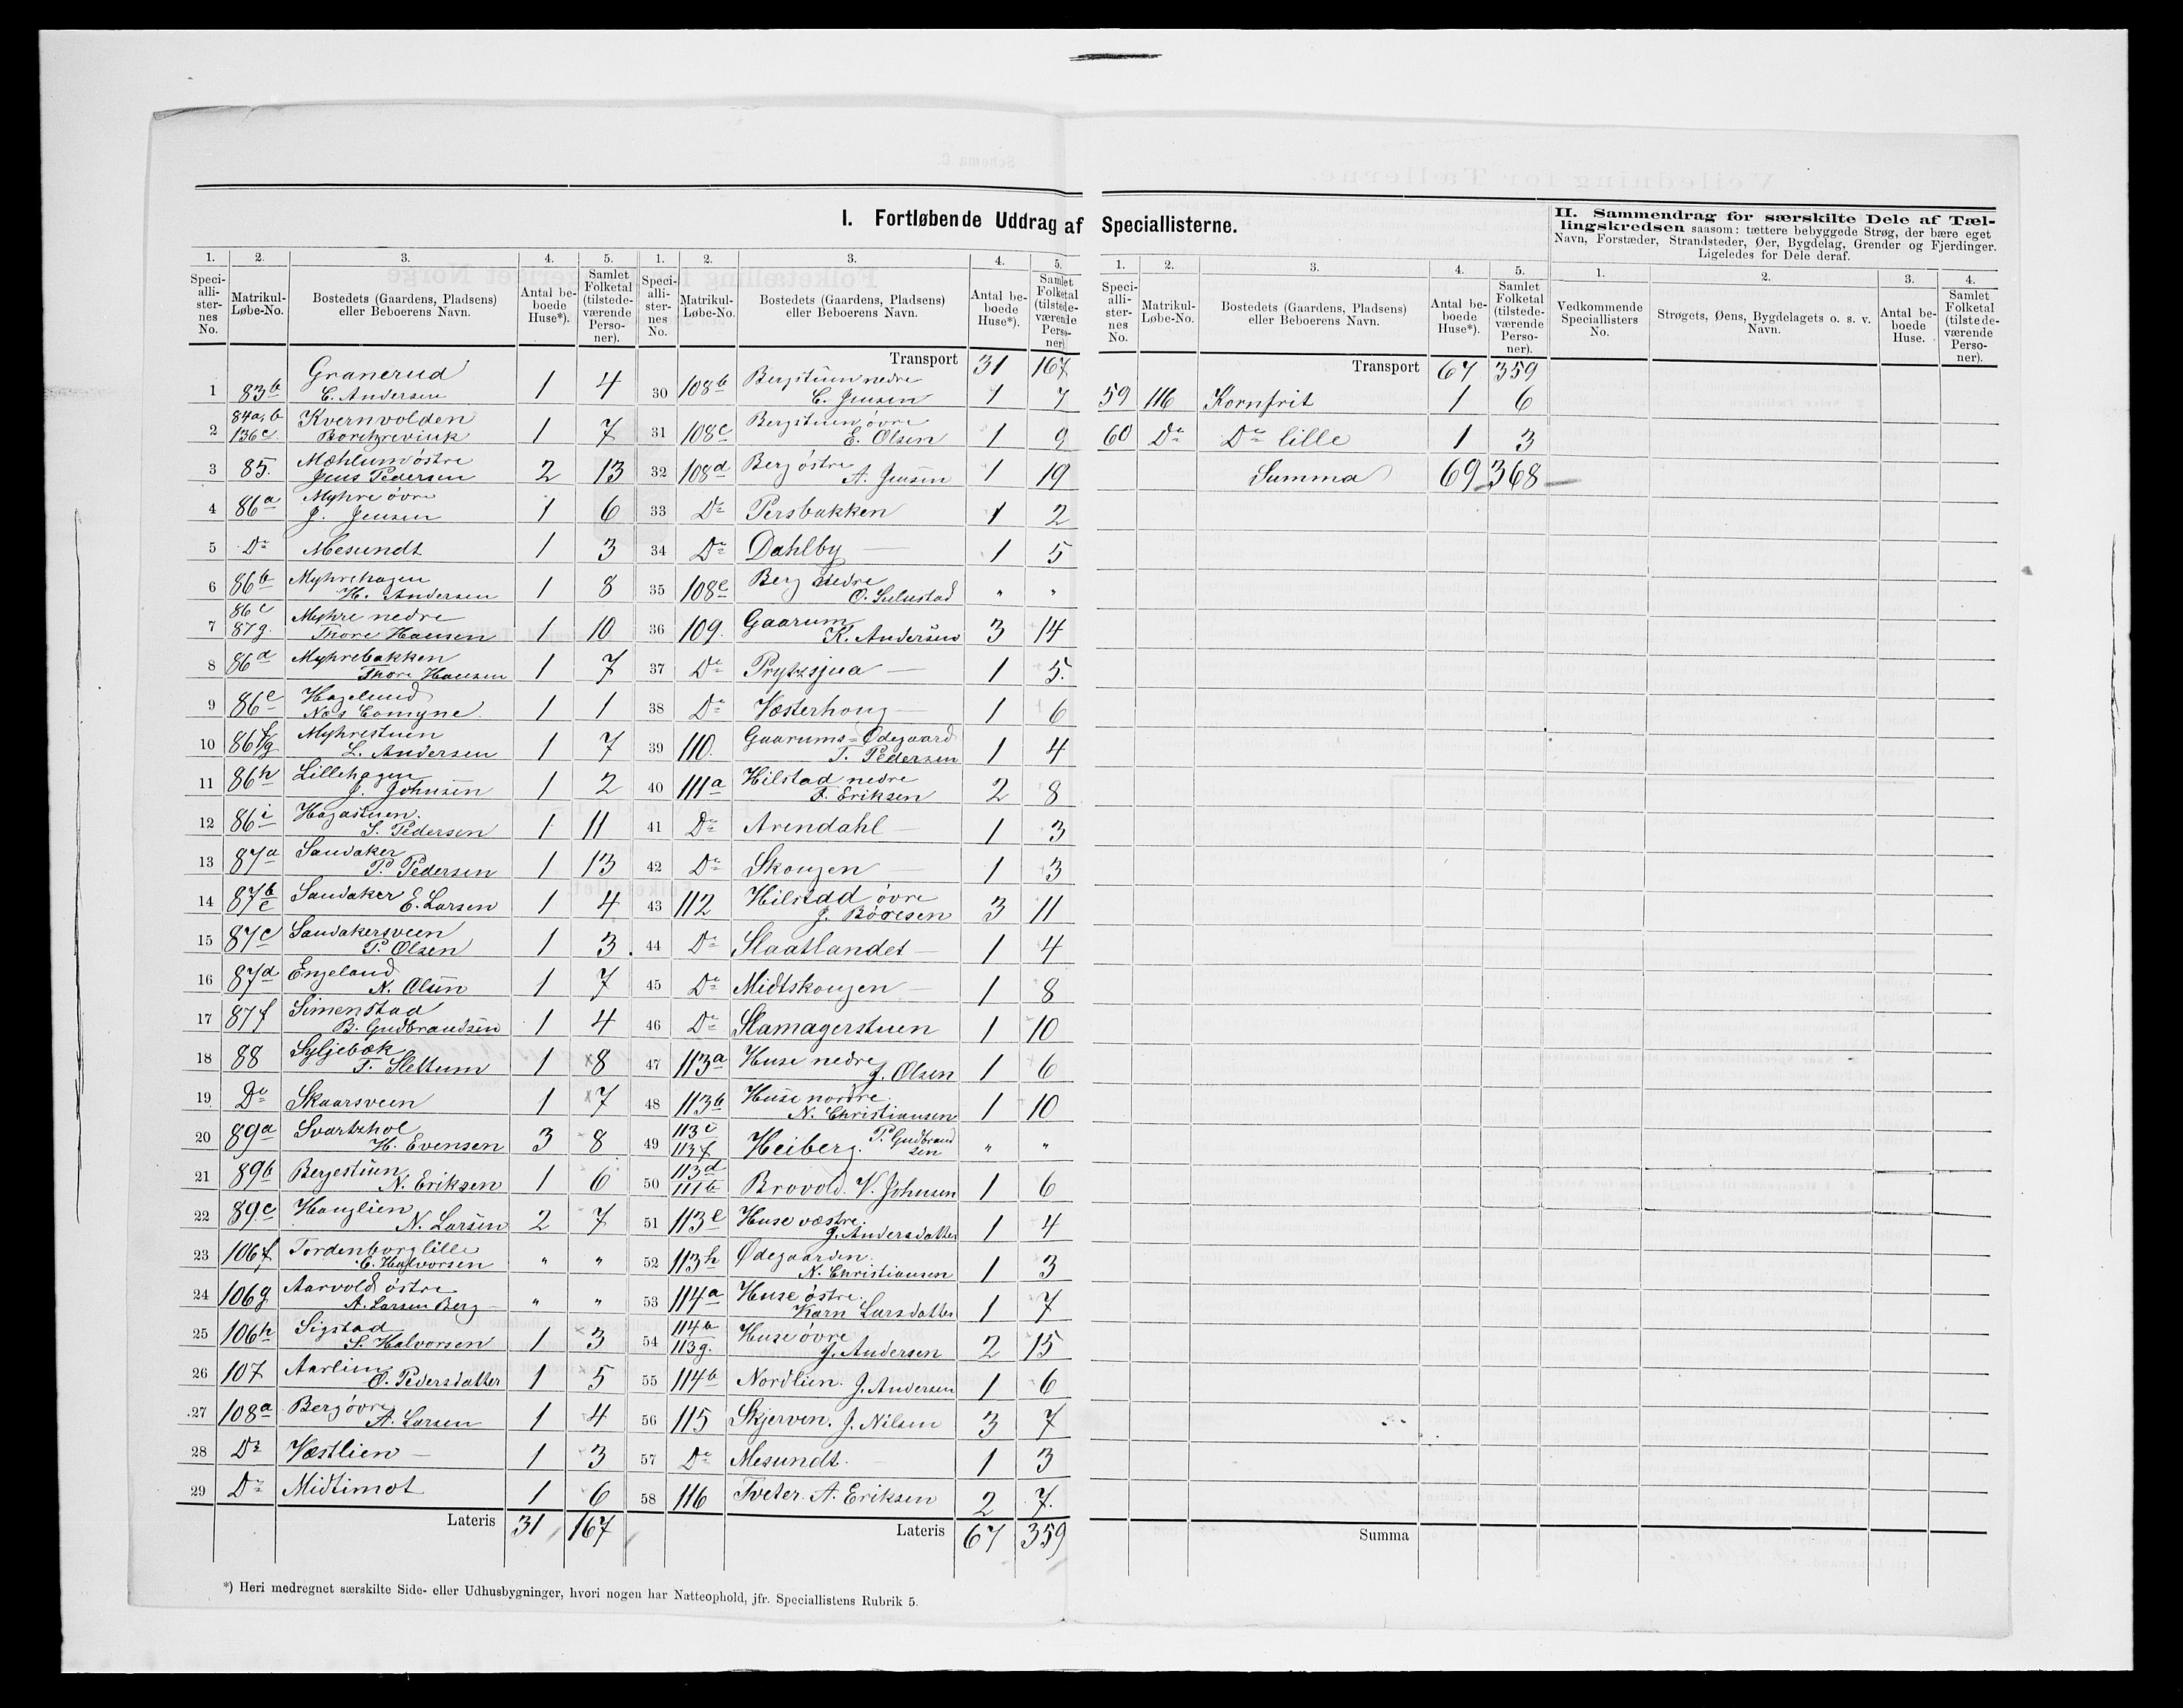 I. Fortløbende Uddrag af Speciallisterne.
II. Sammendrag for særskilte Dele af Tæl-
lingskredsen saasom: tættere bebyggede Strøg, der bære eget
Navn, Forstæder, Strandsteder, Øer, Bygdelag, Grender og Fjerdinger.
Ligeledes for Dele deraf.
1. 2. 3. 4. 5.
Speci-alli-ster-nes No. Matrikul-Løbe-No. Bostedets (Gaardens, Pladsens) eller Beboerens Navn. Antal be-boede Huse*). Samlet Folketal (tilstede-værende Perso-ner).
1 83b Granerud E. Andersen 1 4
2 84a,b 136c Kvernvolden 1 7
3 85. Mæhlum østre Jens Pedersen 2 13
4 86a Myhre øvre J. Jensen 1 6
5 Do Mesundt 1 3
6 86b Myhrehagen H. Andersen 1 8
7 86c 87g. Myhre nedre Thore Hansen 1 10
8 86d Myhrebakken Thore Hansen 1 7
9 86e Hagelund Næs Comyne 1 1
10 86f/g Myhrestuen L. Andersen 1 7
11 86h Lillehagen J. Johnsen 1 2
12 86i Hagastuen. S. Pedersen 1 11
13 87a Sandaker P. Pedersen 1 13
14 87b e Sandaker E. Larsen 1 4
15 87c Sandakersveen P. Olsen 1 3
16 87d Engeland N. Olsen 1 7
17 87f Simenstad B. Gudbrandsen 1 4
18 88 Syljebæk F. Slettum 1 8
19 Do Skaarsveen 1 7
20 89a Svartshol H. Evensen 3 8
21 89b Bergestuen N. Eriksen 1 6
22 89c Hauglien N. Larsen 2 7
23 106f Tordenborg lille C. Halvorsen " "
24 106g Aarvold østre A. Larsen Berg " "
25 106h Sigstad S. Halvorsen 1 3
26 107 Aarlien O. Pedersdatter 1 5
27 108a Berg øvre A. Larsen 1 4
28 Do Væstlien 1 3
29 Do Midtimot 1 6
Lateris 31 167
*) Heri medregnet særskilte Side- eller Udhusbygninger, hvori nogen har Natteophold, jfr. Speciallistens Rubrik 5.
1. 2. 3. 4. 5.
Speci-alli-ster-nes No. Matrikul-Løbe-No. Bostedets (Gaardens, Pladsens) eller Beboerens Navn. Antal be-boede Huse*). Samlet Folketal (tilstede-værende Perso-ner)
Transport 31 167
30 108b Bergstuen nedre C. Jensen 1 7
31 108c Bergstuen øvre E. Olsen 1 9
32 108d Berg østre A. Jensen 1 19
33 Do Persbakken 1 2
34 Do Dahlby 1 5
35 108e Berg nedre O. Sulustad " "
36 109. Gaarum K. Andersen 3 14
37 Do Prytzsjua 1 5.
38 Do Væsterhoug 1 6
39 110. Gaarums=Ødegaard T. Pedersen 1 4
40 111a Hilstad nedre F. Eriksen 2 8
41 Do Arendahl 1 3
42 Do Skougen 1 3
43 112 Hilstad øvre J. Børresen 3 11
44 Do Slaatlandet 1 4
45 Do Midtskougen 1 8
46 Do Slamagerstuen 1 10
47 113a Huse nedre J. Olsen 1 6
48 113b Huse nordre. N. Christiansen 1 10
49 113c 113f Heiberg. P. Gudbrandsen " "
50 113d 111b Brovold. V. Johnsen 1 6
51 113e Huse væstre. J. Andersdatter 1 4
52 113h Ødegaarden. N. Christiansen 1 3
53 114a Huse østre. Karn Larsdatter 1 7
54 114b 113g. Huse øvre J. Andersen 2 15
55 114b Nordlien. J. Andersen 1 6
56 115 Skjerven. J. Nilsen 3 7
57 Do Mesundt. 1 3
58 116 Tveter. A. Eriksen 2 7.
Lateris 67 359
1. 2. 3. 4. 5.
Speci-alli-ster-nes No. Matrikul-Løbe-No. Bostedets (Gaardens, Pladsens) eller Beboerens Navn. Antal be-boede Huse*). Samlet Folketal (tilstede-værende Perso-ner).
Transport 67 359
59 116 Kornfrit 1 6
60 Do Do lille 1 3
Summa 69 368
Summa
1. 2. 3. 4.
Vedkommende Speciallisters No. Strøgets, Øens, Bygdelagets o. s. v. Navn. Antal be-boede Huse. Samlet Folketal (tilstede-værende Perso-ner).